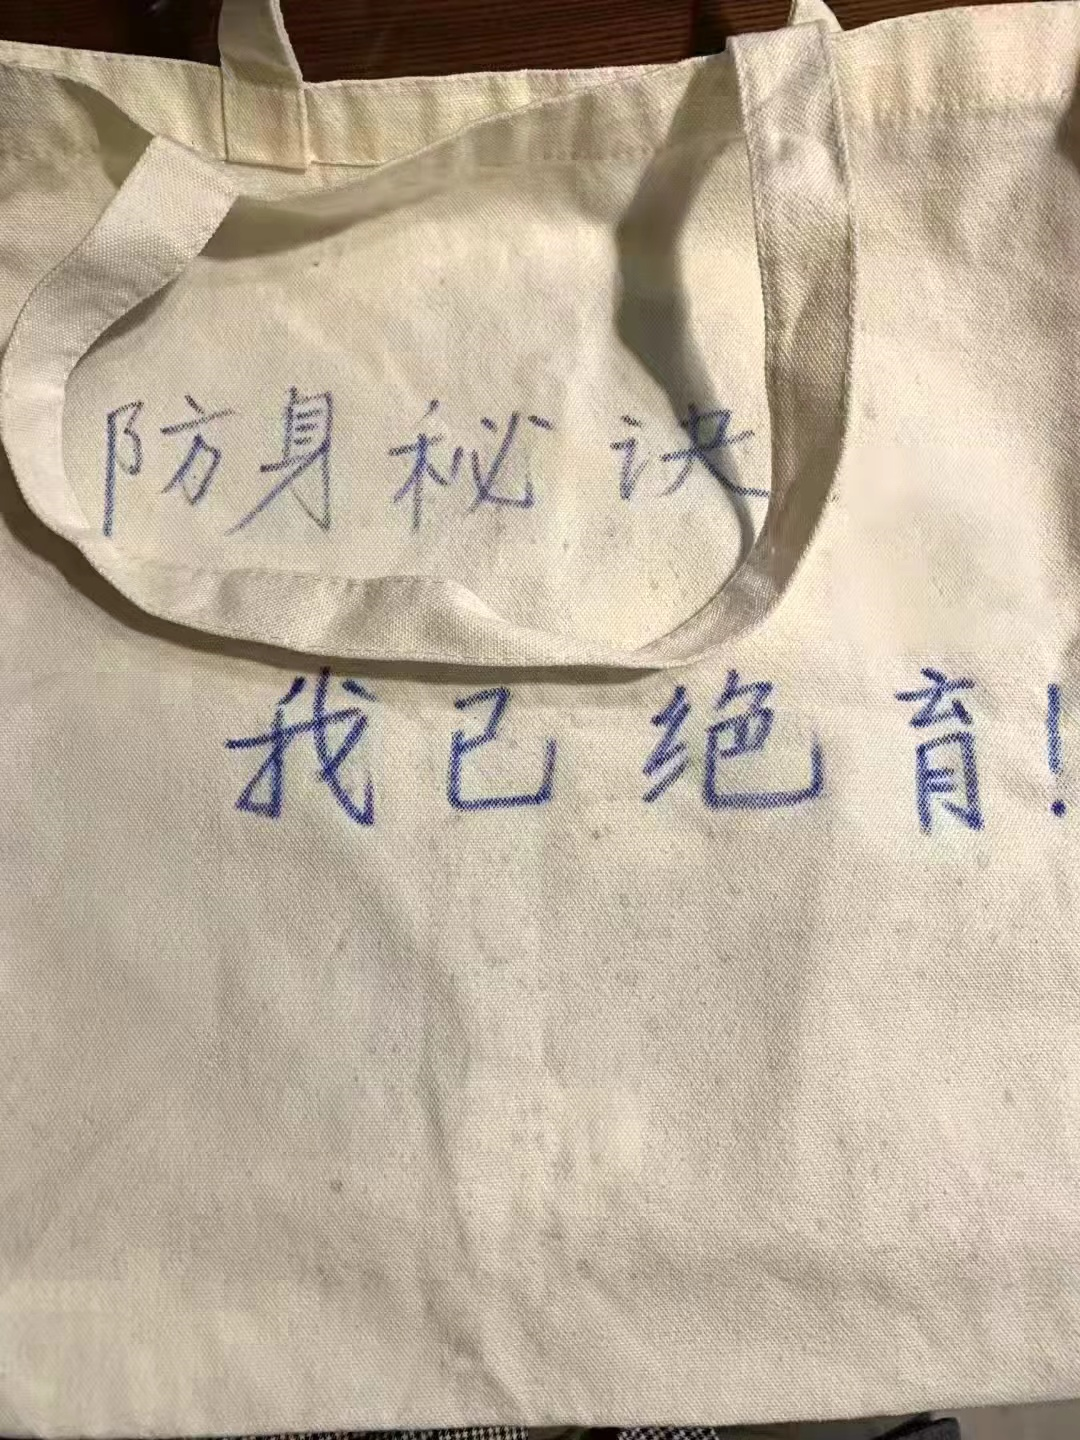 防身秘诀
我已绝育!